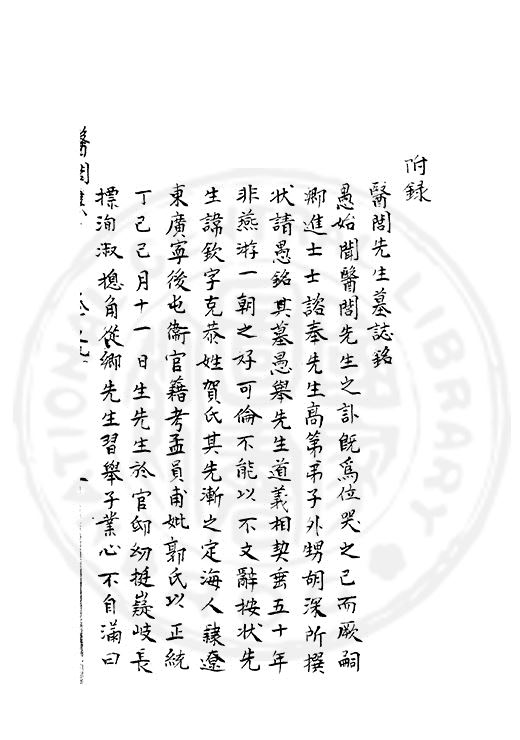 附録
醫閭先生墓誌銘
愚始聞醫閭先生之訃既爲位哭之已而厥嗣
鄉進士士諮奉先生高第弟子外甥胡深所撰
状請愚銘其墓愚舉先生道義相契垂五十年
非燕游一朝之好可倫不能以不文辭按状先
生諱欽字克恭姓賀氏其先浙之定海人隸遼
東廣寧後屯衞官籍考孟員甫妣郭氏以正統
丁巳己月十一日生先生於官邸幼挺嶷岐長
摽洵淑揔角從鄉先生習舉子業心不自滿曰
醫閭